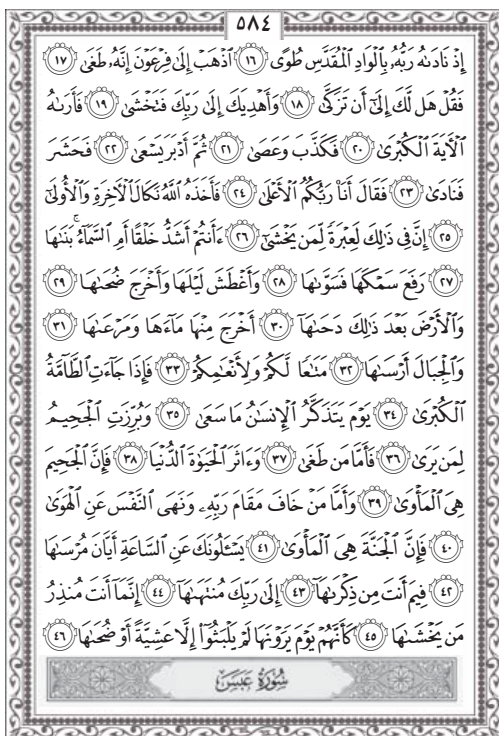 ٥٨٤
إِذْ نَادَىٰهُ رَبُّهُۥ بِٱلْوَادِ ٱلْمُقَدَّسِ طُوًى ١٦ ٱذْهَبْ إِلَىٰ فِرْعَوْنَ إِنَّهُۥ طَغَىٰ ١٧
فَقُلْ هَل لَّكَ إِلَىٰٓ أَن تَزَكَّىٰ ١٨ وَأَهْدِيَكَ إِلَىٰ رَبِّكَ فَتَخْشَىٰ ١٩ فَأَرَىٰهُ
ٱلْـَٔايَةَ ٱلْكُبْرَىٰ ٢٠ فَكَذَّبَ وَعَصَىٰ ٢١ ثُمَّ أَدْبَرَ يَسْعَىٰ ٢٢ فَحَشَرَ
فَنَادَىٰ ٢٣ فَقَالَ أَنَا۠ رَبُّكُمُ ٱلْأَعْلَىٰ ٢٤ فَأَخَذَهُ ٱللَّهُ نَكَالَ ٱلْـَٔاخِرَةِ وَٱلْأُولَىٰٓ
٢٥ إِنَّ فِى ذَٰلِكَ لَعِبْرَةً لِّمَن يَخْشَىٰٓ ٢٦ ءَأَنتُمْ أَشَدُّ خَلْقًا أَمِ ٱلسَّمَآءُ ۚ بَنَىٰهَا
٢٧ رَفَعَ سَمْكَهَا فَسَوَّىٰهَا ٢٨ وَأَغْطَشَ لَيْلَهَا وَأَخْرَجَ ضُحَىٰهَا ٢٩
وَٱلْأَرْضَ بَعْدَ ذَٰلِكَ دَحَىٰهَآ ٣٠ أَخْرَجَ مِنْهَا مَآءَهَا وَمَرْعَىٰهَا ٣١
وَٱلْجِبَالَ أَرْسَىٰهَا ٣٢ مَتَٰعًا لَّكُمْ وَلِأَنْعَٰمِكُمْ ٣٣ فَإِذَا جَآءَتِ ٱلطَّآمَّةُ
ٱلْكُبْرَىٰ ٣٤ يَوْمَ يَتَذَكَّرُ ٱلْإِنسَٰنُ مَا سَعَىٰ ٣٥ وَبُرِّزَتِ ٱلْجَحِيمُ
لِمَن يَرَىٰ ٣٦ فَأَمَّا مَن طَغَىٰ ٣٧ وَءَاثَرَ ٱلْحَيَوٰةَ ٱلدُّنْيَا ٣٨ فَإِنَّ ٱلْجَحِيمَ
هِىَ ٱلْمَأْوَىٰ ٣٩ وَأَمَّا مَنْ خَافَ مَقَامَ رَبِّهِۦ وَنَهَى ٱلنَّفْسَ عَنِ ٱلْهَوَىٰ
٤٠ فَإِنَّ ٱلْجَنَّةَ هِىَ ٱلْمَأْوَىٰ ٤١ يَسْـَٔلُونَكَ عَنِ ٱلسَّاعَةِ أَيَّانَ مُرْسَىٰهَا
٤٢ فِيمَ أَنتَ مِن ذِكْرَىٰهَآ ٤٣ إِلَىٰ رَبِّكَ مُنتَهَىٰهَآ ٤٤ إِنَّمَآ أَنتَ مُنذِرُ
مَن يَخْشَىٰهَا ٤٥ كَأَنَّهُمْ يَوْمَ يَرَوْنَهَا لَمْ يَلْبَثُوٓا۟ إِلَّا عَشِيَّةً أَوْ ضُحَىٰهَا ٤٦
سُورَةُ عَبَسَ